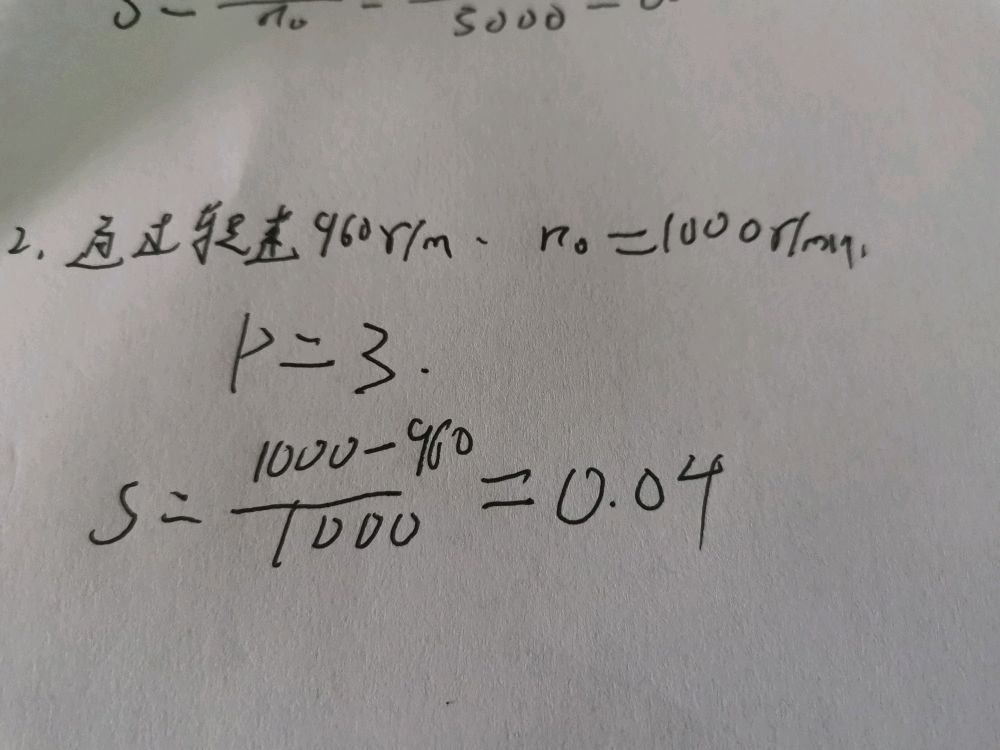 S = / n₀ = / 3000 = 0.
2. 通过转速960r/m. n₀=1000r/min.
P=3.
S = (1000-960)/1000 = 0.04